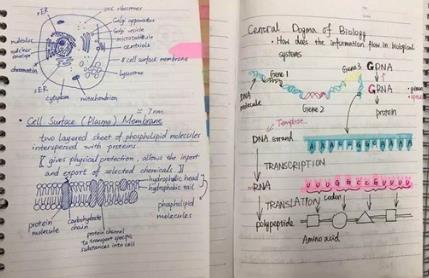 rER
Golgi apparatus
Golgi vesicle
microtubules
centriole
nucleolus
nuclear envelope
chromatin
cell surface membrane
lysosome
sER
cytoplasm
mitochondrion
≈ 7nm
Cell Surface (Plasma) Membrane
two layered sheet of phospholipid molecules
interspersed with proteins.
[ gives physical protection, allows the import
and export of selected chemicals ]
hydrophilic head
hydrophobic tail
phospholipid
molecules
protein
molecule
carbohydrate
chain
protein channel
to transport specific
substances into cell
Central Dogma of Biology
• How does the information flow in biological
systems
Gene 1
Gene 3
DNA
RNA
protein
DNA
molecule
Gene 2
Template
DNA strand
TRANSCRIPTION
RNA
TRANSLATION
codon
polypeptide
Amino acid